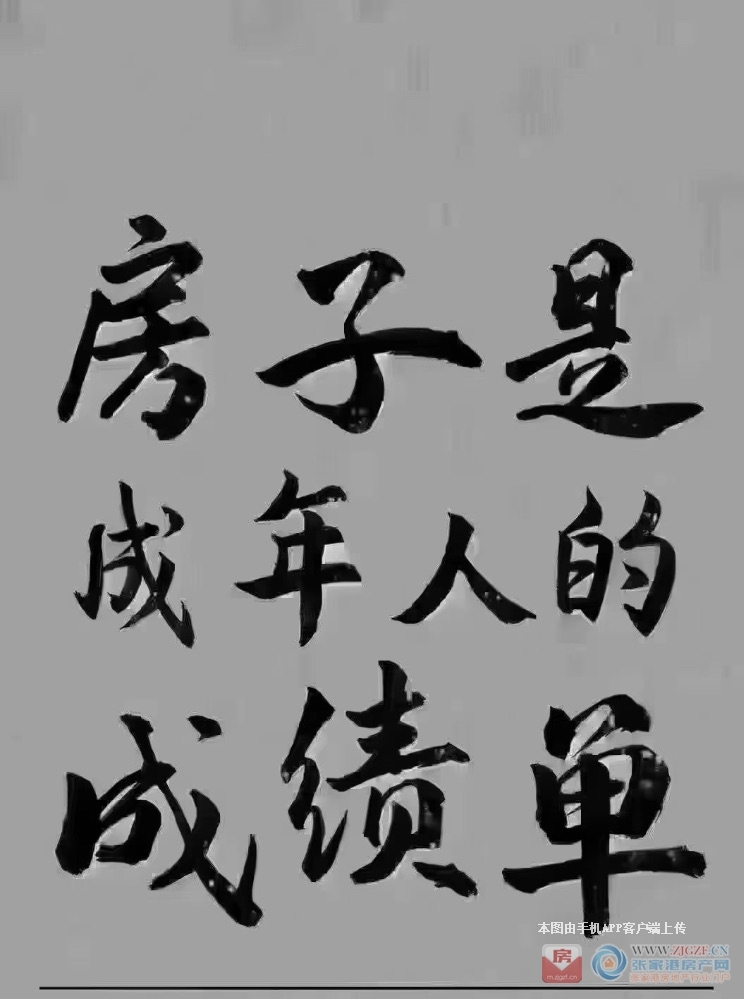 房子是
成年人的
成绩单
本图由手机APP客户端上传
房
m.zjgzf.cn
WWW.ZJGZF.CN
张家港房产网